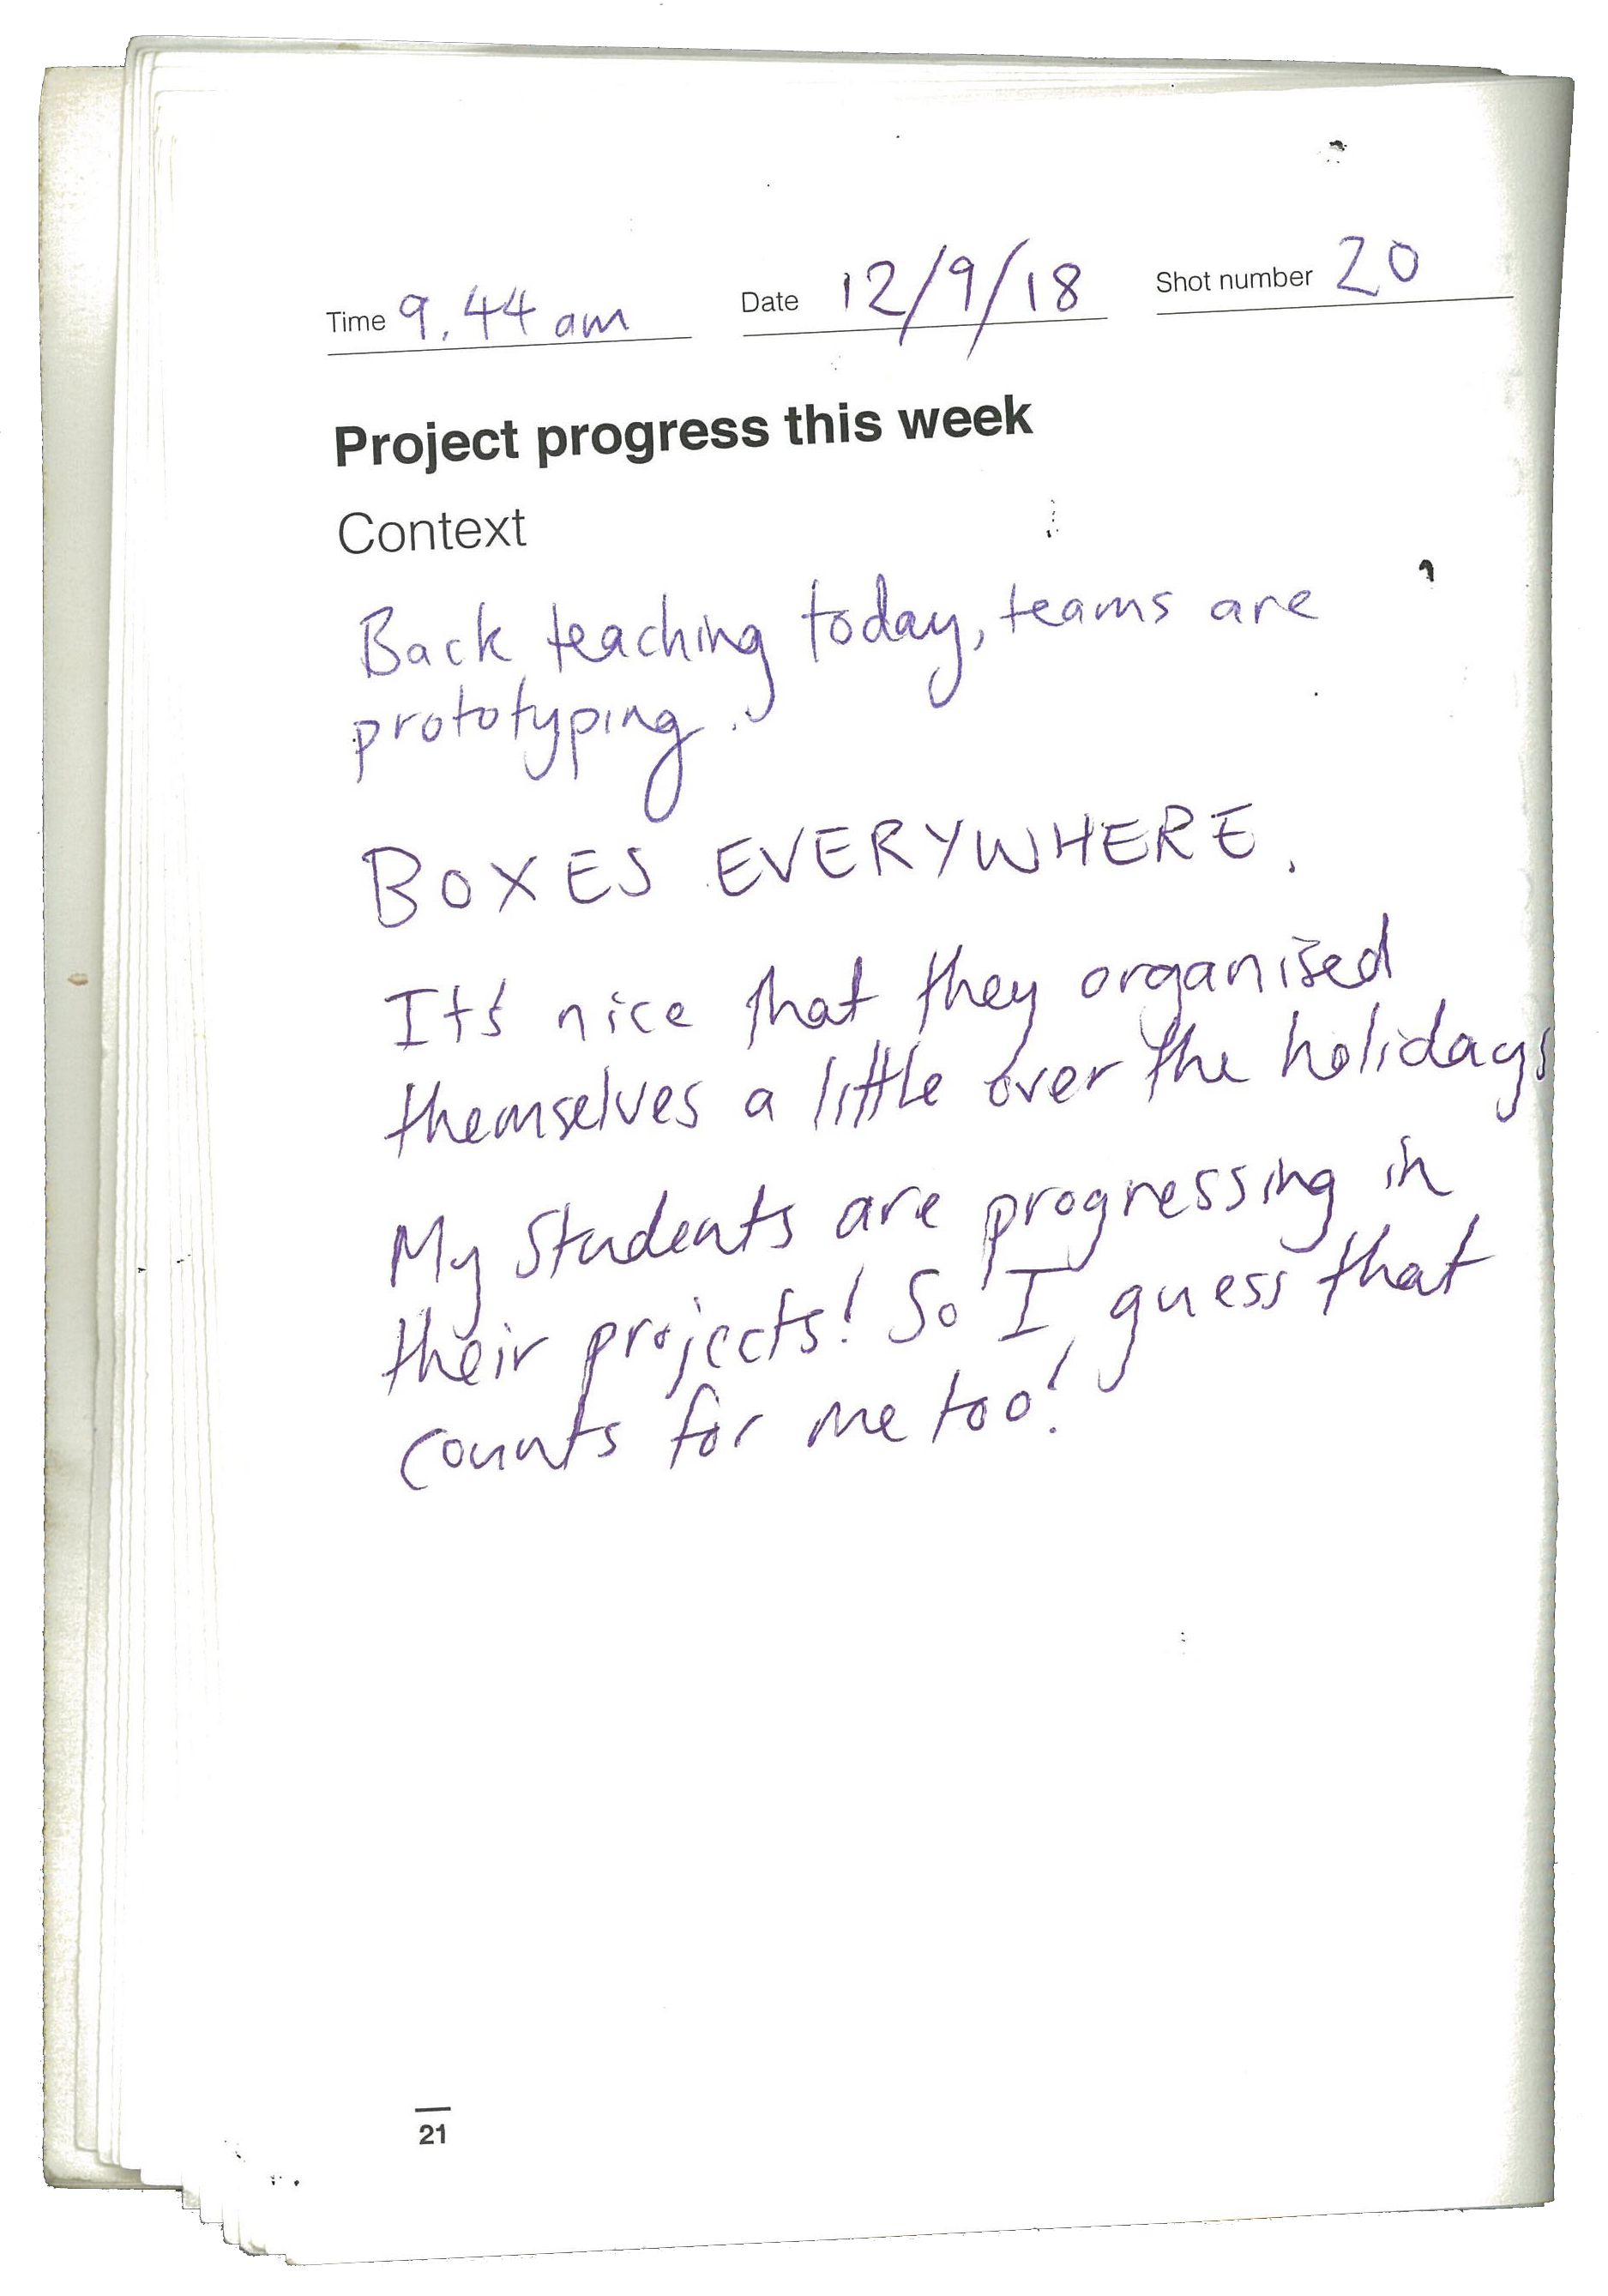 Time 9.44 am Date 12/9/18 Shot number 20
Project progress this week
Context
Back teaching today, teams are
prototyping.
BOXES EVERYWHERE.
It's nice that they organised
themselves a little over the holidays
My students are progressing in
their projects! So I guess that
counts for me too!
21